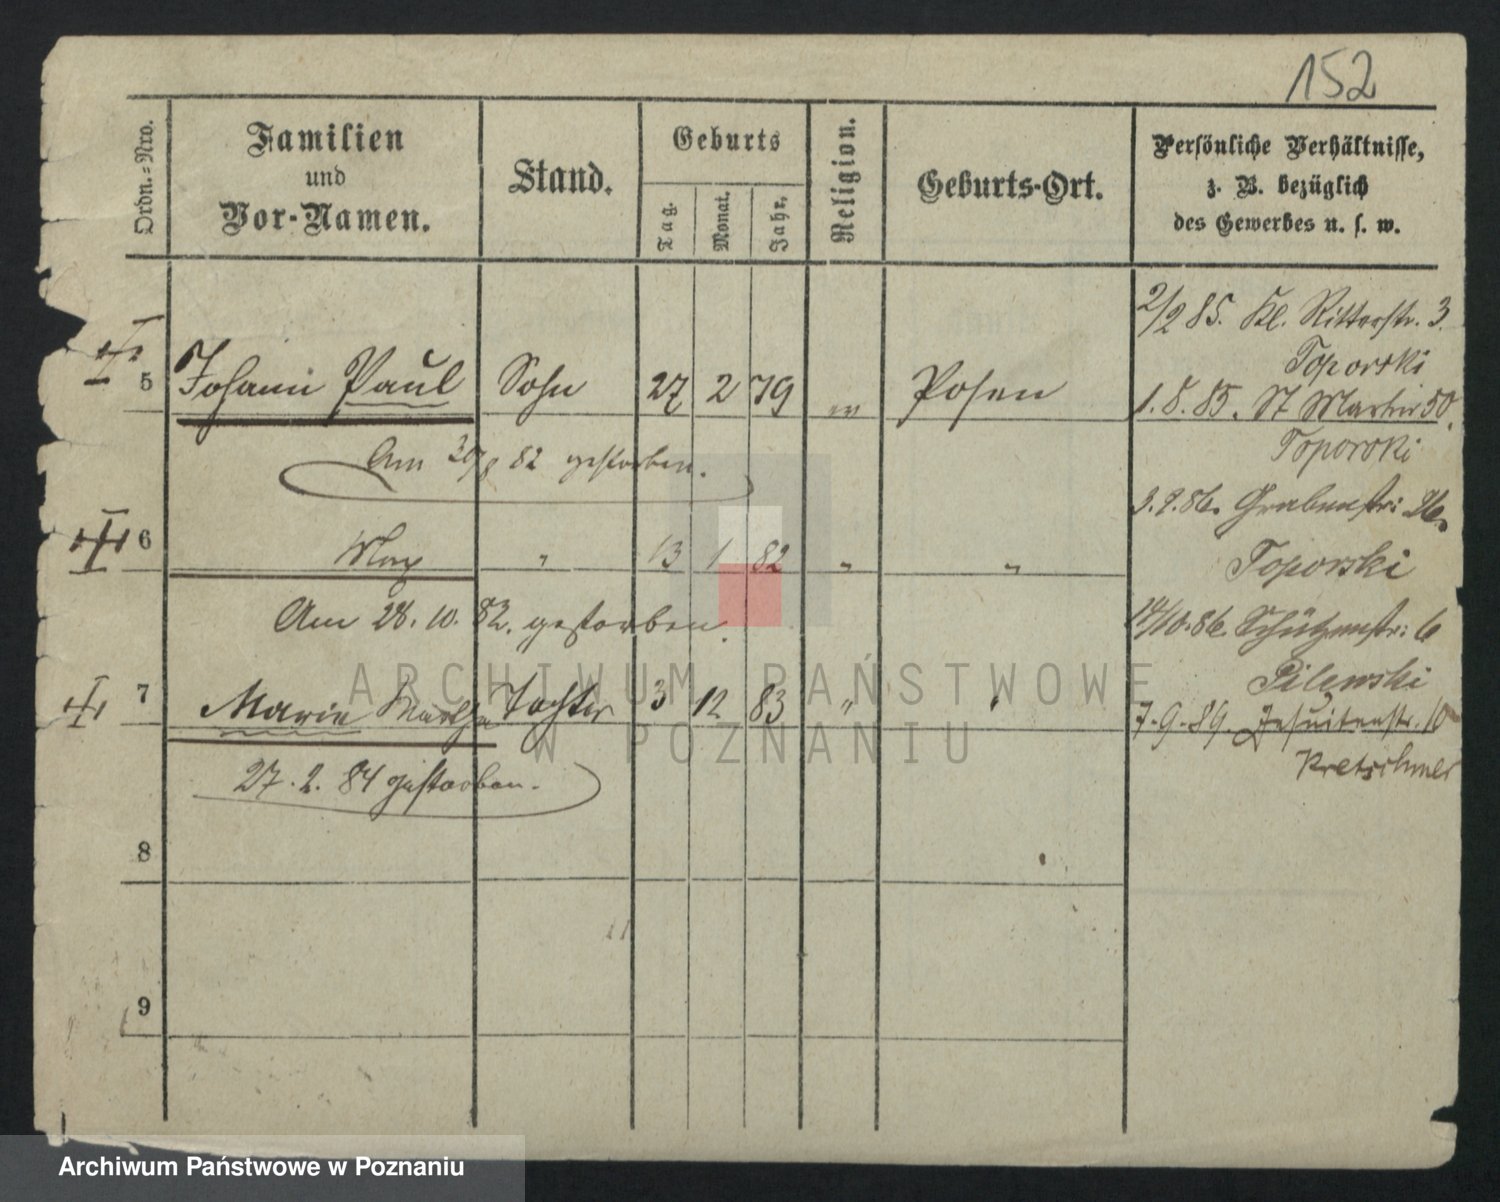 152
Ordn.=Nro.
Familien
und
Vor-Namen.
Stand.
Geburts
Tag.
Monat.
Jahr.
Religion.
Geburts-Ort.
Persönliche Verhältnisse,
z. B. bezüglich
des Gewerbes u. s. w.
2/2 85. Kl. Ritterstr. 3.
Toporski
5 Johann Paul Sohn 27 2 79 Posen
1.8.85. St Martin 50.
Toporski
Am 82 gestorben.
3.2.86. Grabenstr: 26.
6 Max " 13 1 82 " "
Toporski
Am 28.10.82. gestorben.
10.86. Schützenstr: 6
Pilewski
7 Marie Martha Tochter 3 12 83 " "
7.9.89. Jesuitenstr. 10
Kretschmer
27.2.84 gestorben.
8
9
ARCHIWUM PAŃSTWOWE
W POZNANIU
Archiwum Państwowe w Poznaniu